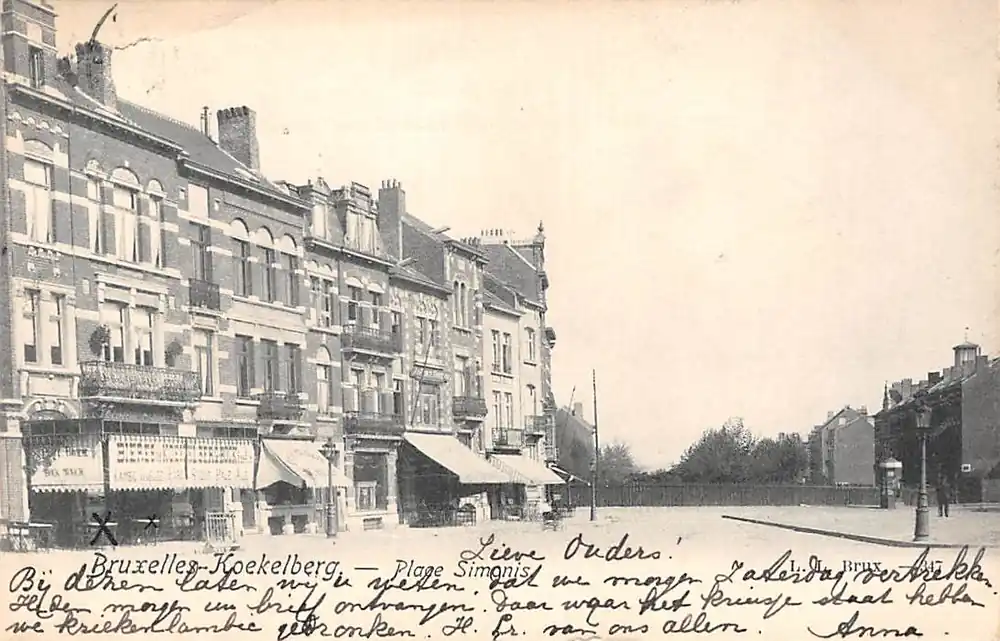 BOCK
Bruxelles-Koekelberg. — Place Simonis.
L. L. Brux — 347
Lieve Ouders!
Bij dezen laten wij u weten, dat we morgen Zaterdag vertrekken.
Heden morgen uw brief ontvangen. Daar waar het kruisje staat hebben
we kriekenlambic gedronken. H. Gr. van ons allen. Anna.